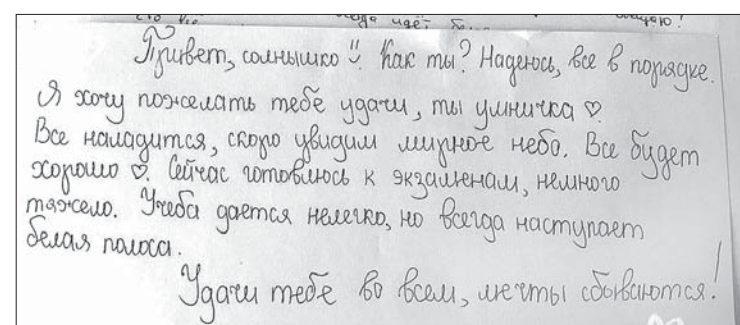 Привет, солнышко . Как ты? Надеюсь, все в порядке.
Я хочу пожелать тебе удачи, ты умничка ♡.
Все наладится, скоро увидим мирное небо. Все будет
хорошо ♡. Сейчас готовлюсь к экзаменам, немного
тяжело. Учеба дается нелегко, но всегда наступает
белая полоса.
Удачи тебе во всем, мечты сбываются!